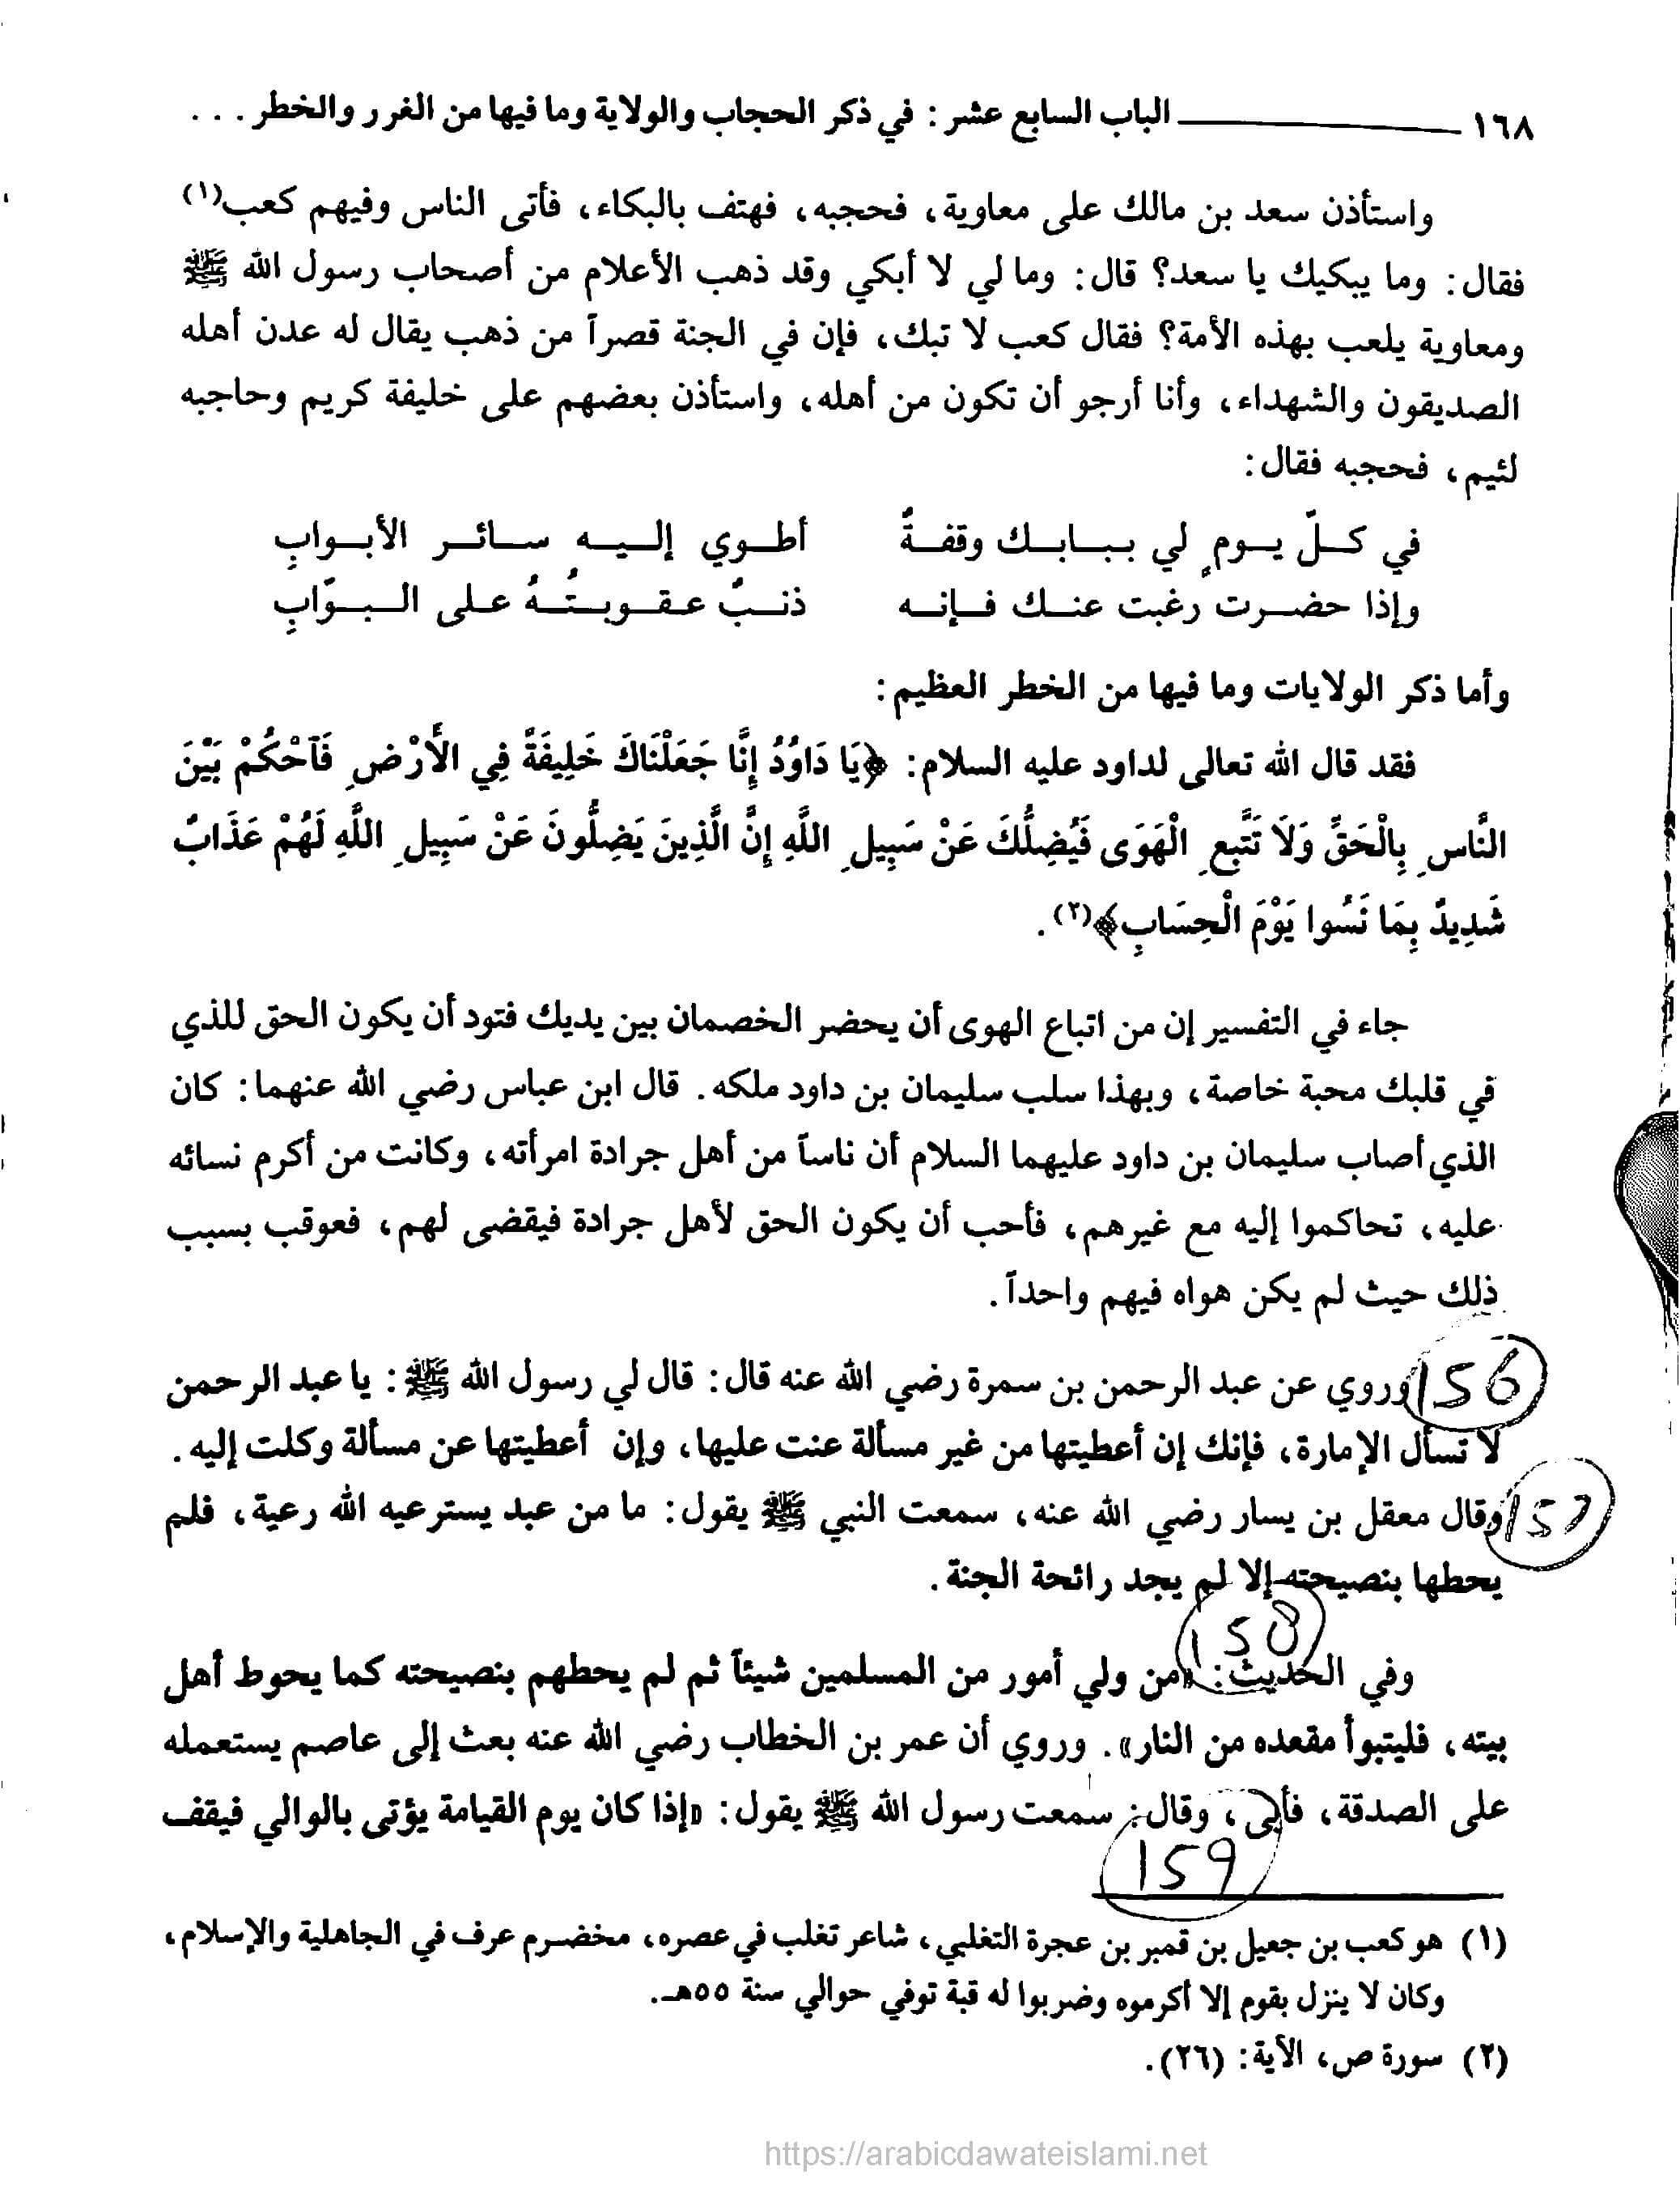 ١٦٨ الباب السابع عشر: في ذكر الحجاب والولاية وما فيها من الغرر والخطر . . .
واستأذن سعد بن مالك على معاوية، فحجبه، فهتف بالبكاء، فأتى الناس وفيهم كعب(١)
فقال: وما يبكيك يا سعد؟ قال: وما لي لا أبكي وقد ذهب الأعلام من أصحاب رسول الله ﷺ
ومعاوية يلعب بهذه الأمة؟ فقال كعب لا تبك، فإن في الجنة قصراً من ذهب يقال له عدن أهله
الصديقون والشهداء، وأنا أرجو أن تكون من أهله، واستأذن بعضهم على خليفة كريم وحاجبه
لئيم، فحجبه فقال:
في كلّ يومٍ لي ببابك وقفةٌ أطوي إليه سائر الأبوابِ
وإذا حضرت رغبت عنك فإنه ذنبٌ عقوبتُهُ على البوّابِ
وأما ذكر الولايات وما فيها من الخطر العظيم:
فقد قال الله تعالى لداود عليه السلام: ﴿يَا دَاوُدُ إِنَّا جَعَلْنَاكَ خَلِيفَةً فِي الأَرْضِ فَآحْكُمْ بَيْنَ
النَّاسِ بِالْحَقِّ وَلَا تَتَّبِعِ الْهَوَى فَيُضِلَّكَ عَنْ سَبِيلِ اللَّهِ إِنَّ الَّذِينَ يَضِلُّونَ عَنْ سَبِيلِ اللَّهِ لَهُمْ عَذَابٌ
شَدِيدٌ بِمَا نَسُوا يَوْمَ الْحِسَابِ﴾(٢).
جاء في التفسير إن من اتباع الهوى أن يحضر الخصمان بين يديك فتود أن يكون الحق للذي
في قلبك محبة خاصة، وبهذا سلب سليمان بن داود ملكه. قال ابن عباس رضي الله عنهما: كان
الذي أصاب سليمان بن داود عليهما السلام أن ناساً من أهل جرادة امرأته، وكانت من أكرم نسائه
عليه، تحاكموا إليه مع غيرهم، فأحب أن يكون الحق لأهل جرادة فيقضى لهم، فعوقب بسبب
ذلك حيث لم يكن هواه فيهم واحداً.
156 وروي عن عبد الرحمن بن سمرة رضي الله عنه قال: قال لي رسول الله ﷺ: يا عبد الرحمن
لا تسأل الإمارة، فإنك إن أعطيتها من غير مسألة عنت عليها، وإن أعطيتها عن مسألة وكلت إليه.
157 وقال معقل بن يسار رضي الله عنه، سمعت النبي ﷺ يقول: ما من عبد يسترعيه الله رعية، فلم
يحطها بنصيحته إلا لم يجد رائحة الجنة.
158
وفي الحديث: «من ولي أمور من المسلمين شيئاً ثم لم يحطهم بنصيحته كما يحوط أهل
بيته، فليتبوأ مقعده من النار». وروي أن عمر بن الخطاب رضي الله عنه بعث إلى عاصم يستعمله
على الصدقة، فأبى، وقال: سمعت رسول الله ﷺ يقول: «إذا كان يوم القيامة يؤتى بالوالي فيقف
159
(١) هو كعب بن جعيل بن قمبر بن عجرة التغلبي، شاعر تغلب في عصره، مخضرم عرف في الجاهلية والإسلام،
وكان لا ينزل بقوم إلا أكرموه وضربوا له قبة توفي حوالي سنة ٥٥هـ.
(٢) سورة ص، الآية: (٢٦).
https://arabicdawateislami.net